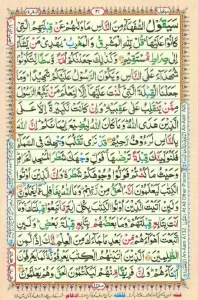 سَيَقُوْلُ السُّفَهَآءُ مِنَ النَّاسِ مَا وَلّٰىهُمْ عَنْ قِبْلَتِهِمُ الَّتِىْ
كَانُوْا عَلَيْهَا قُلْ لِّلّٰهِ الْمَشْرِقُ وَالْمَغْرِبُ يَهْدِىْ مَنْ يَّشَآءُ
اِلٰى صِرَاطٍ مُّسْتَقِيْمٍ وَكَذٰلِكَ جَعَلْنٰكُمْ اُمَّةً وَّسَطًا لِّتَكُوْنُوْا
شُهَدَآءَ عَلَى النَّاسِ وَيَكُوْنَ الرَّسُوْلُ عَلَيْكُمْ شَهِيْدًا وَمَا
جَعَلْنَا الْقِبْلَةَ الَّتِىْ كُنْتَ عَلَيْهَآ اِلَّا لِنَعْلَمَ مَنْ يَّتَّبِعُ الرَّسُوْلَ
مِمَّنْ يَّنْقَلِبُ عَلٰى عَقِبَيْهِ وَاِنْ كَانَتْ لَكَبِيْرَةً اِلَّا عَلَى
الَّذِيْنَ هَدَى اللّٰهُ وَمَا كَانَ اللّٰهُ لِيُضِيْعَ اِيْمَانَكُمْ اِنَّ اللّٰهَ
بِالنَّاسِ لَرَءُوْفٌ رَّحِيْمٌ قَدْ نَرٰى تَقَلُّبَ وَجْهِكَ فِى السَّمَآءِ
فَلَنُوَلِّيَنَّكَ قِبْلَةً تَرْضٰىهَا فَوَلِّ وَجْهَكَ شَطْرَ الْمَسْجِدِ الْحَرَامِ
وَحَيْثُ مَا كُنْتُمْ فَوَلُّوْا وُجُوْهَكُمْ شَطْرَهٗ وَاِنَّ الَّذِيْنَ اُوْتُوا
الْكِتٰبَ لَيَعْلَمُوْنَ اَنَّهُ الْحَقُّ مِنْ رَّبِّهِمْ وَمَا اللّٰهُ بِغَافِلٍ عَمَّا
يَعْمَلُوْنَ وَلَئِنْ اَتَيْتَ الَّذِيْنَ اُوْتُوا الْكِتٰبَ بِكُلِّ اٰيَةٍ مَّا تَبِعُوْا قِبْلَتَكَ وَمَآ
اَنْتَ بِتَابِعٍ قِبْلَتَهُمْ وَمَا بَعْضُهُمْ بِتَابِعٍ قِبْلَةَ بَعْضٍ وَلَئِنِ
اتَّبَعْتَ اَهْوَآءَهُمْ مِّنْ بَعْدِ مَا جَآءَكَ مِنَ الْعِلْمِ اِنَّكَ اِذًا لَّمِنَ
الظّٰلِمِيْنَ اَلَّذِيْنَ اٰتَيْنٰهُمُ الْكِتٰبَ يَعْرِفُوْنَهٗ كَمَا يَعْرِفُوْنَ
اَبْنَآءَهُمْ وَاِنَّ فَرِيْقًا مِّنْهُمْ لَيَكْتُمُوْنَ الْحَقَّ وَهُمْ يَعْلَمُوْنَ